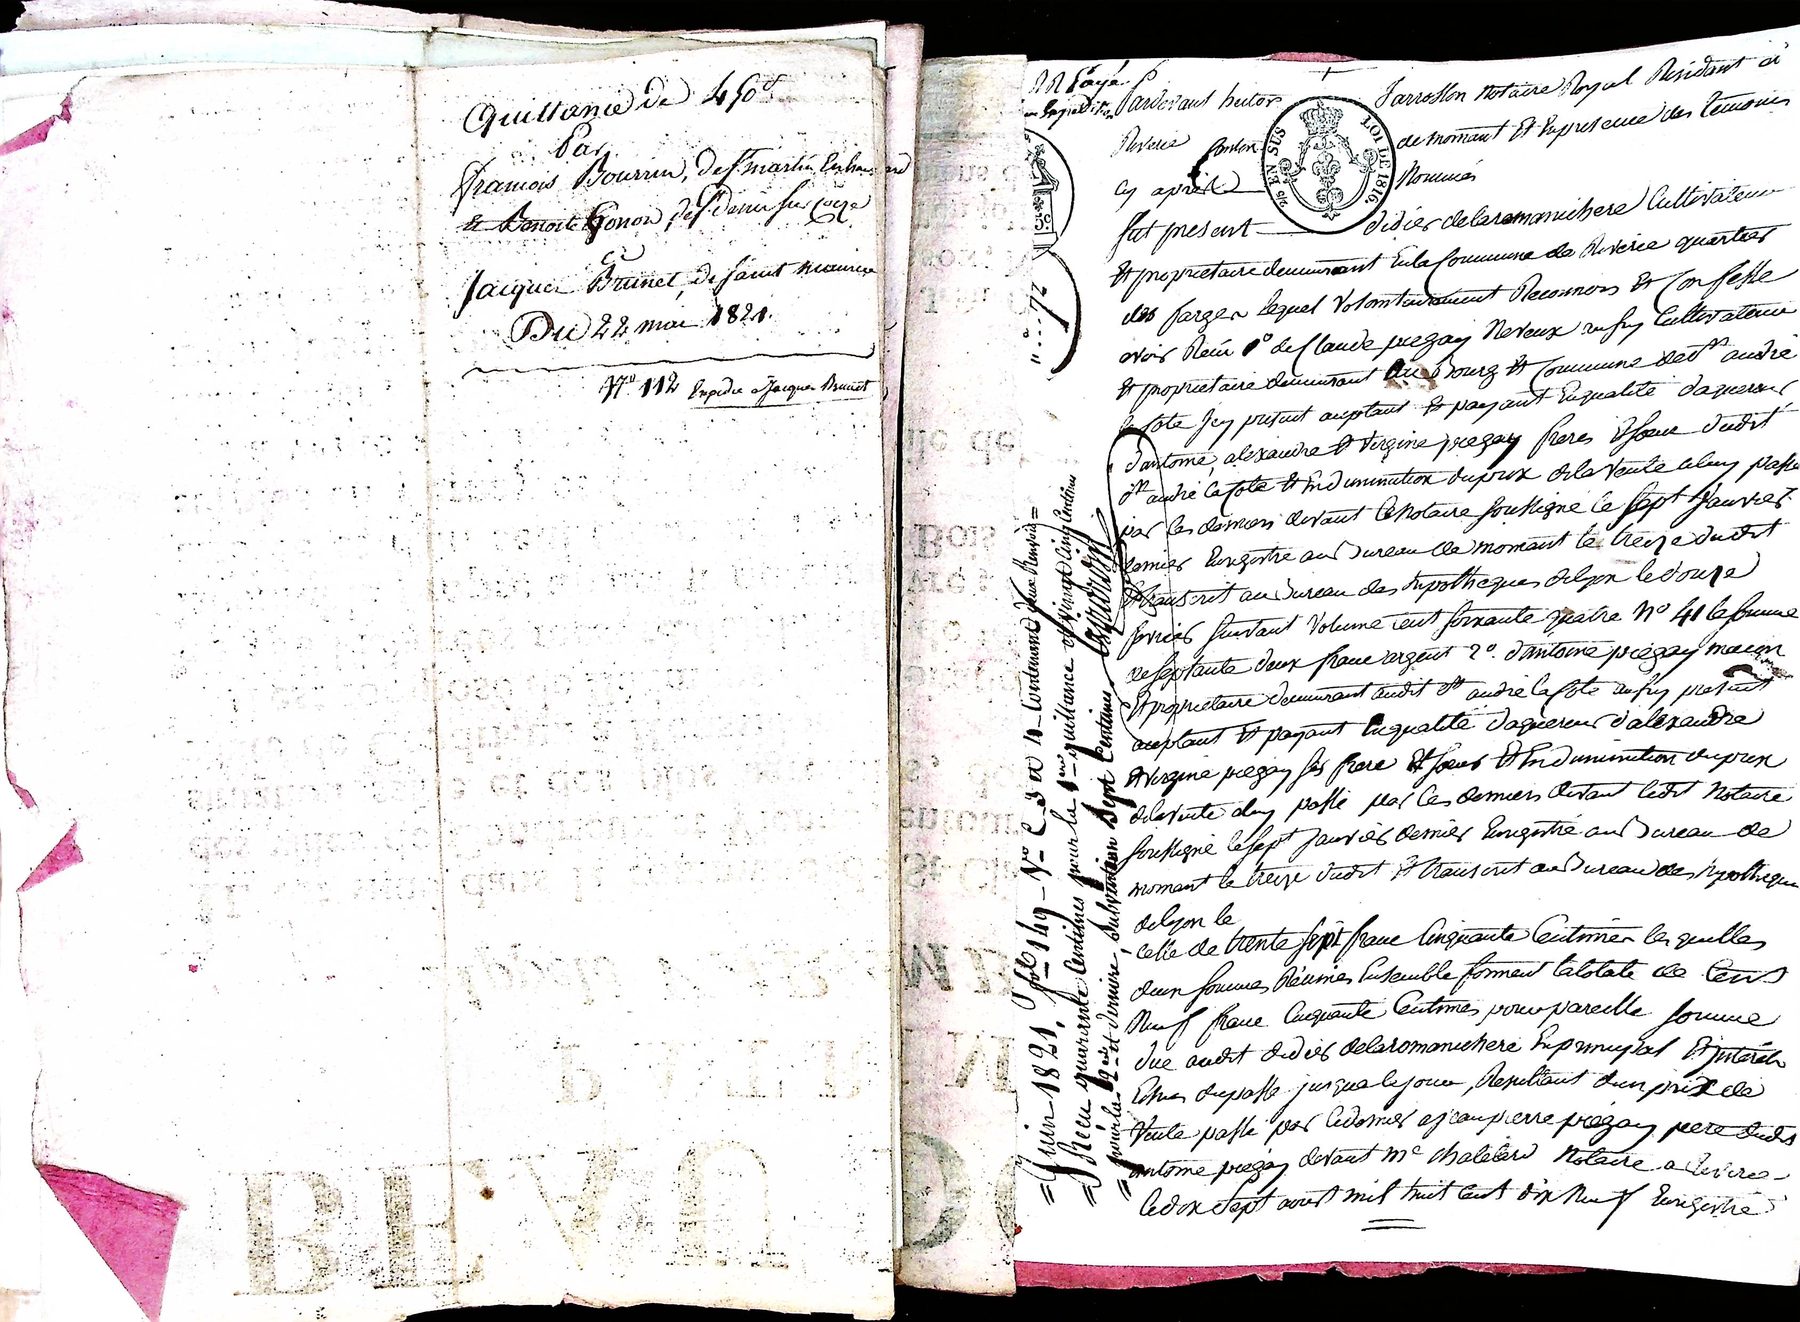 Quittance de 450f
Par
François Bourrin, de St martin En
& Benoit Gonon, de St Denis sur
à
Jacques Brunet, de saint maurice
Du 22 mai 1821.
No 112 Expedié a Jacques Brunet
Pardevant hector Jarrosson Notaire Royal Residant à
Riverie Canton de mornant Et En presence des temoins
Cy après Nommés
fut present didier delaromanichere Cultivateur
Et proprietaire demeurant En la Commune de Riverie quartier
des farges lequel volontairement Reconnois Et Confesse
avoir Reçu 1o de Claude piegay Neveux Cultivateur
Et proprietaire demeurant au Bourg Et Commune de St andré
la Cote Icy present acceptant Et payant En qualité daquereur
dantoine, alexandre Et virgine piegay freres Et sœur dudit
St andré la Cote Et En diminution du prix de la vente a luy passé
par les derniers devant le Notaire soussigné le sept Janvier
dernier Enregistré au Bureau de mornant le treize dudit
Et transcrit au Bureau des hypotheques de lyon le douze
fevrier suivant volume cent soixante quatre No 41 la somme
de septante deux franc argent 2o. d'antoine piegay macon
Et proprietaire demeurant audit St andré la Cote present
acceptant Et payant En qualité daquereur d'alexandre
Et virgine piegay ses frere Et sœur Et En diminution du prix
de la vente a luy passé par les derniers devant ledit Notaire
soussigné le sept Janvier dernier Enregistré au Bureau de
mornant le treize dudit Et transcrit au Bureau des hypotheques
de lyon le
Celle de trente sept franc Cinquante Centimes les quelles
deux sommes Réunies Ensemble forment la totale de Cent
Neuf franc Cinquante Centimes pour pareille somme
due audit didier delaromanichere En principal Et Interets
Echus du passé jusqua le jour, Resultant dun prix de
vente passé par Ce dernier a jean pierre piégay pere dudit
antoine piegay devant me chatelard Notaire a Riverie
le dix sept aout mil huit cent dix Neuf Enregistré
= Juin 1821, fol 149 - Vo C 3 et 4 - Contenant deux Renvois =
= Reçu quarante Centimes pour la 1ere quittance et vingt Cinq Centimes
= pour la 2me et derniere, subvention Sept Centimes
25c EN SUS
LOI DE 1816